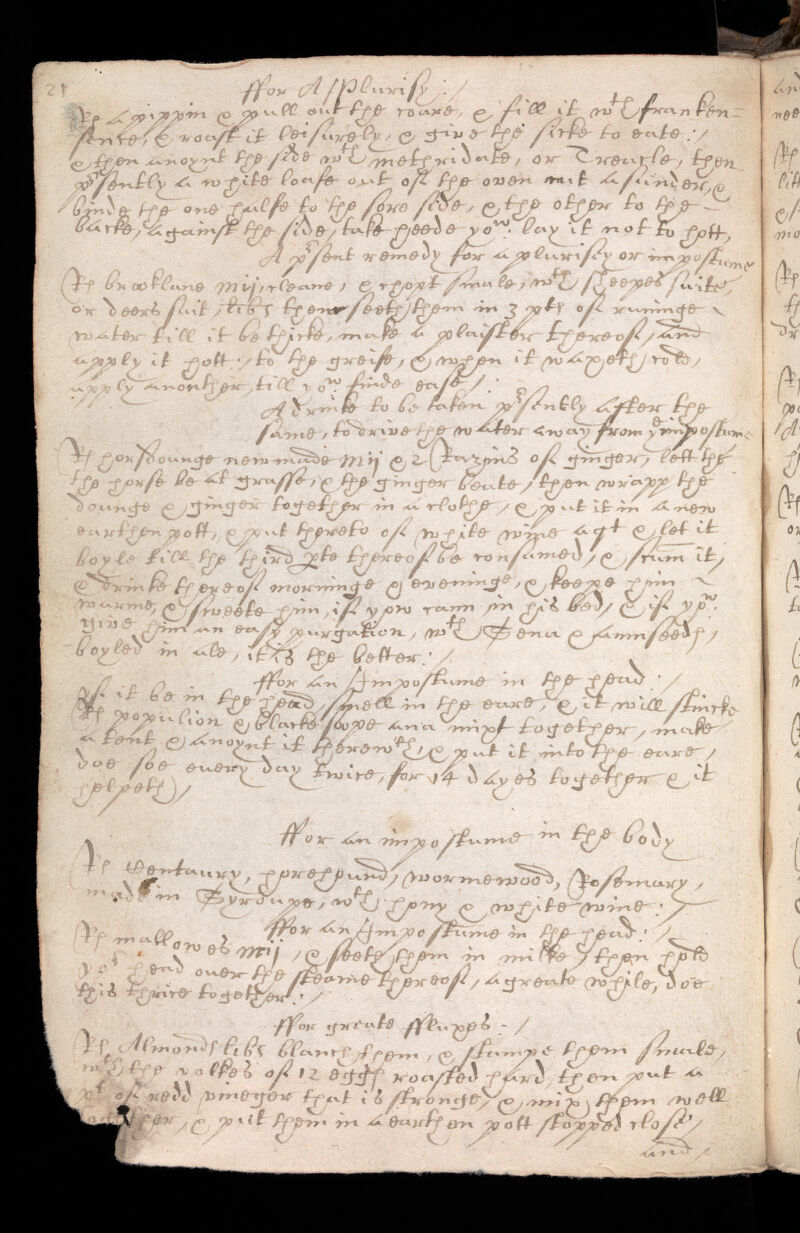 21
ffor A Plurisy :/
Rx A pippin & pull out the coare, & fill it wth franken=
sence, & roast it leisurely, & give the sicke to eate :/
& then anoynt the side wth methridate, or Treacle, then
psently a white loafe out of the oven cut asunder, &
binde the one halfe to the sore side, & the other to the
backe, against the side, take heede you lay it not to hott,
A psent remedy for a plurisey or impostume
Rx brooklane Mij, cleane, & chopt smale, wth sheepes suite,
or deers suit, libs then seeth them in 3 pts of runinge
water till it be thicke, make a plaister thereof, and
apply it hott :, to the greife, & when it waxeth cold,
apply anouther, till you finde ease /:
A drinke to be taken psently after the
same, to drive the water away from ye impostume
Rx horsdounge new made Mij & 2 Razins of ginger, lett the
the horse be at grasse, & the ginger beate, then wrapp the
dounge & ginger together in a clothe, & put it in a new
earthen pott, & put thereto of white wine a qt & let it
boyle till the third pte thereof be consumed, & scum it,
& drinke thereof morninge & eveninge, & keepe him
warme, & sweete him, if yow cann in his bed, & if you
give him an easy purgation, wth Sena & annseeds,
boyled in ale, it is the better :/
ffor an Impostume in the head :/
If it be in the head, smell in the eare, & it will stincke
Rx populion & blacke sope ana mixt together, make
a tent & anoynt it therewth, & put it into the eare,
doe soe euery day twice, for 14 dayes together & it
helpeth,
ffor an impostume in the body
Rx Centaury, horehound, wormewood, Rosemary,
made in Syroupe, wth hony & white wine :/
ffor an Impostume in the head :/
Rx mallowes Mij, & seeth them in milke, then hold
yor head over the steame thereof, a greate while, doe
this thrice together :/
ffor greate ffluxes :/
Rx Almonds libs blanch them, & stampe them smale,
wth the yolkes of 12 eggs roasted hard, then put a
pt of redd vineger that is stronge, & mix them well
together, & put them in a earthen pott stopped close,
and /